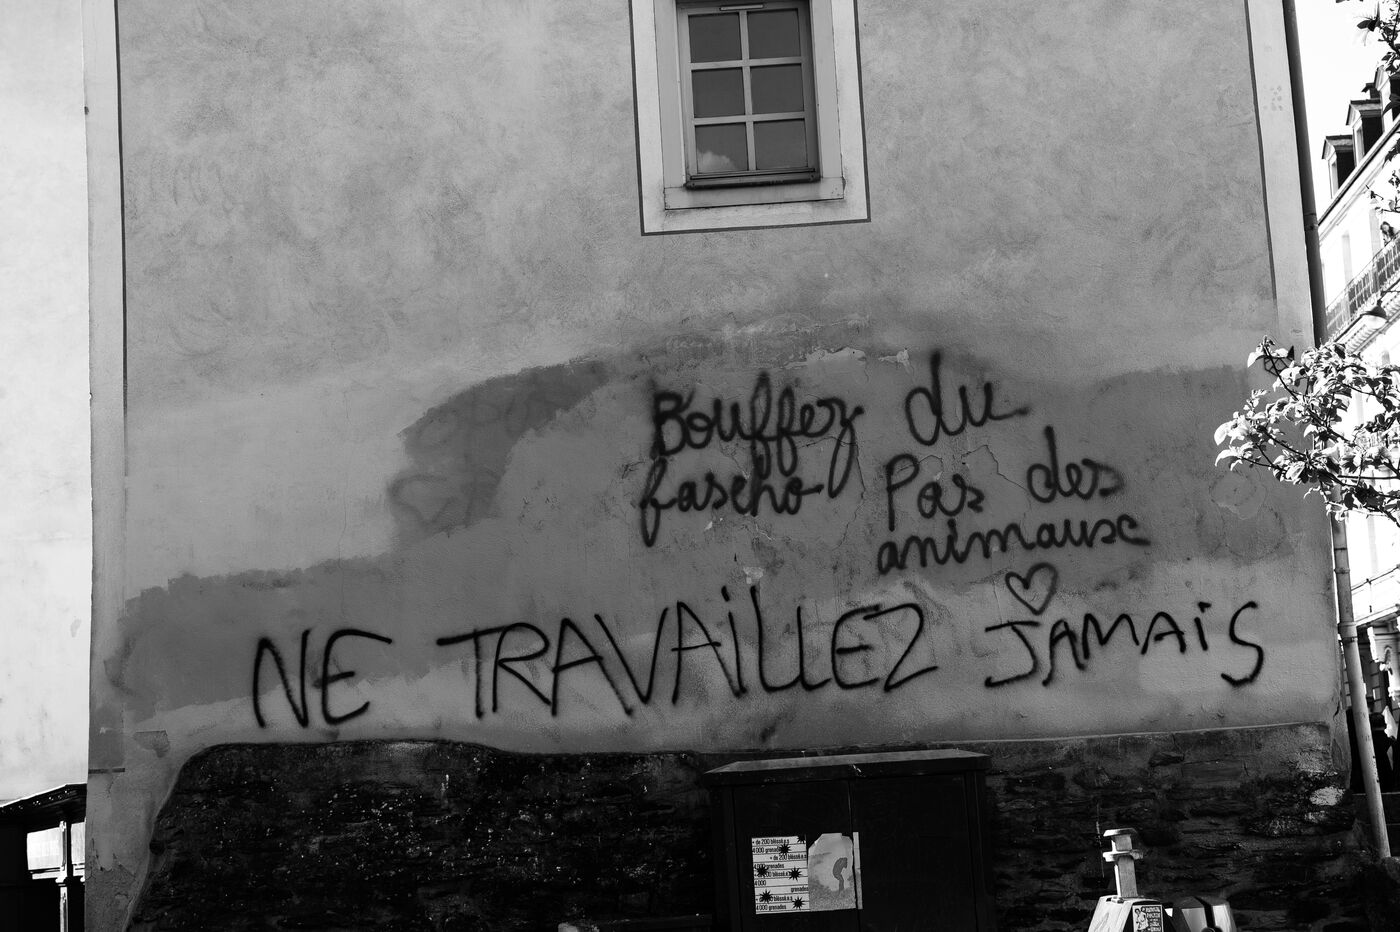 Bouffez du
fascho Pas des
animaux
NE TRAVAILLEZ JAMAIS
+ de 200 bléssé.e.s
4 000 grenades
+ de 200 bléssé.e.s
4 000 grenades
bléssé.e.s
4 000
grenades
bléssé.e.s
4 000 grenades